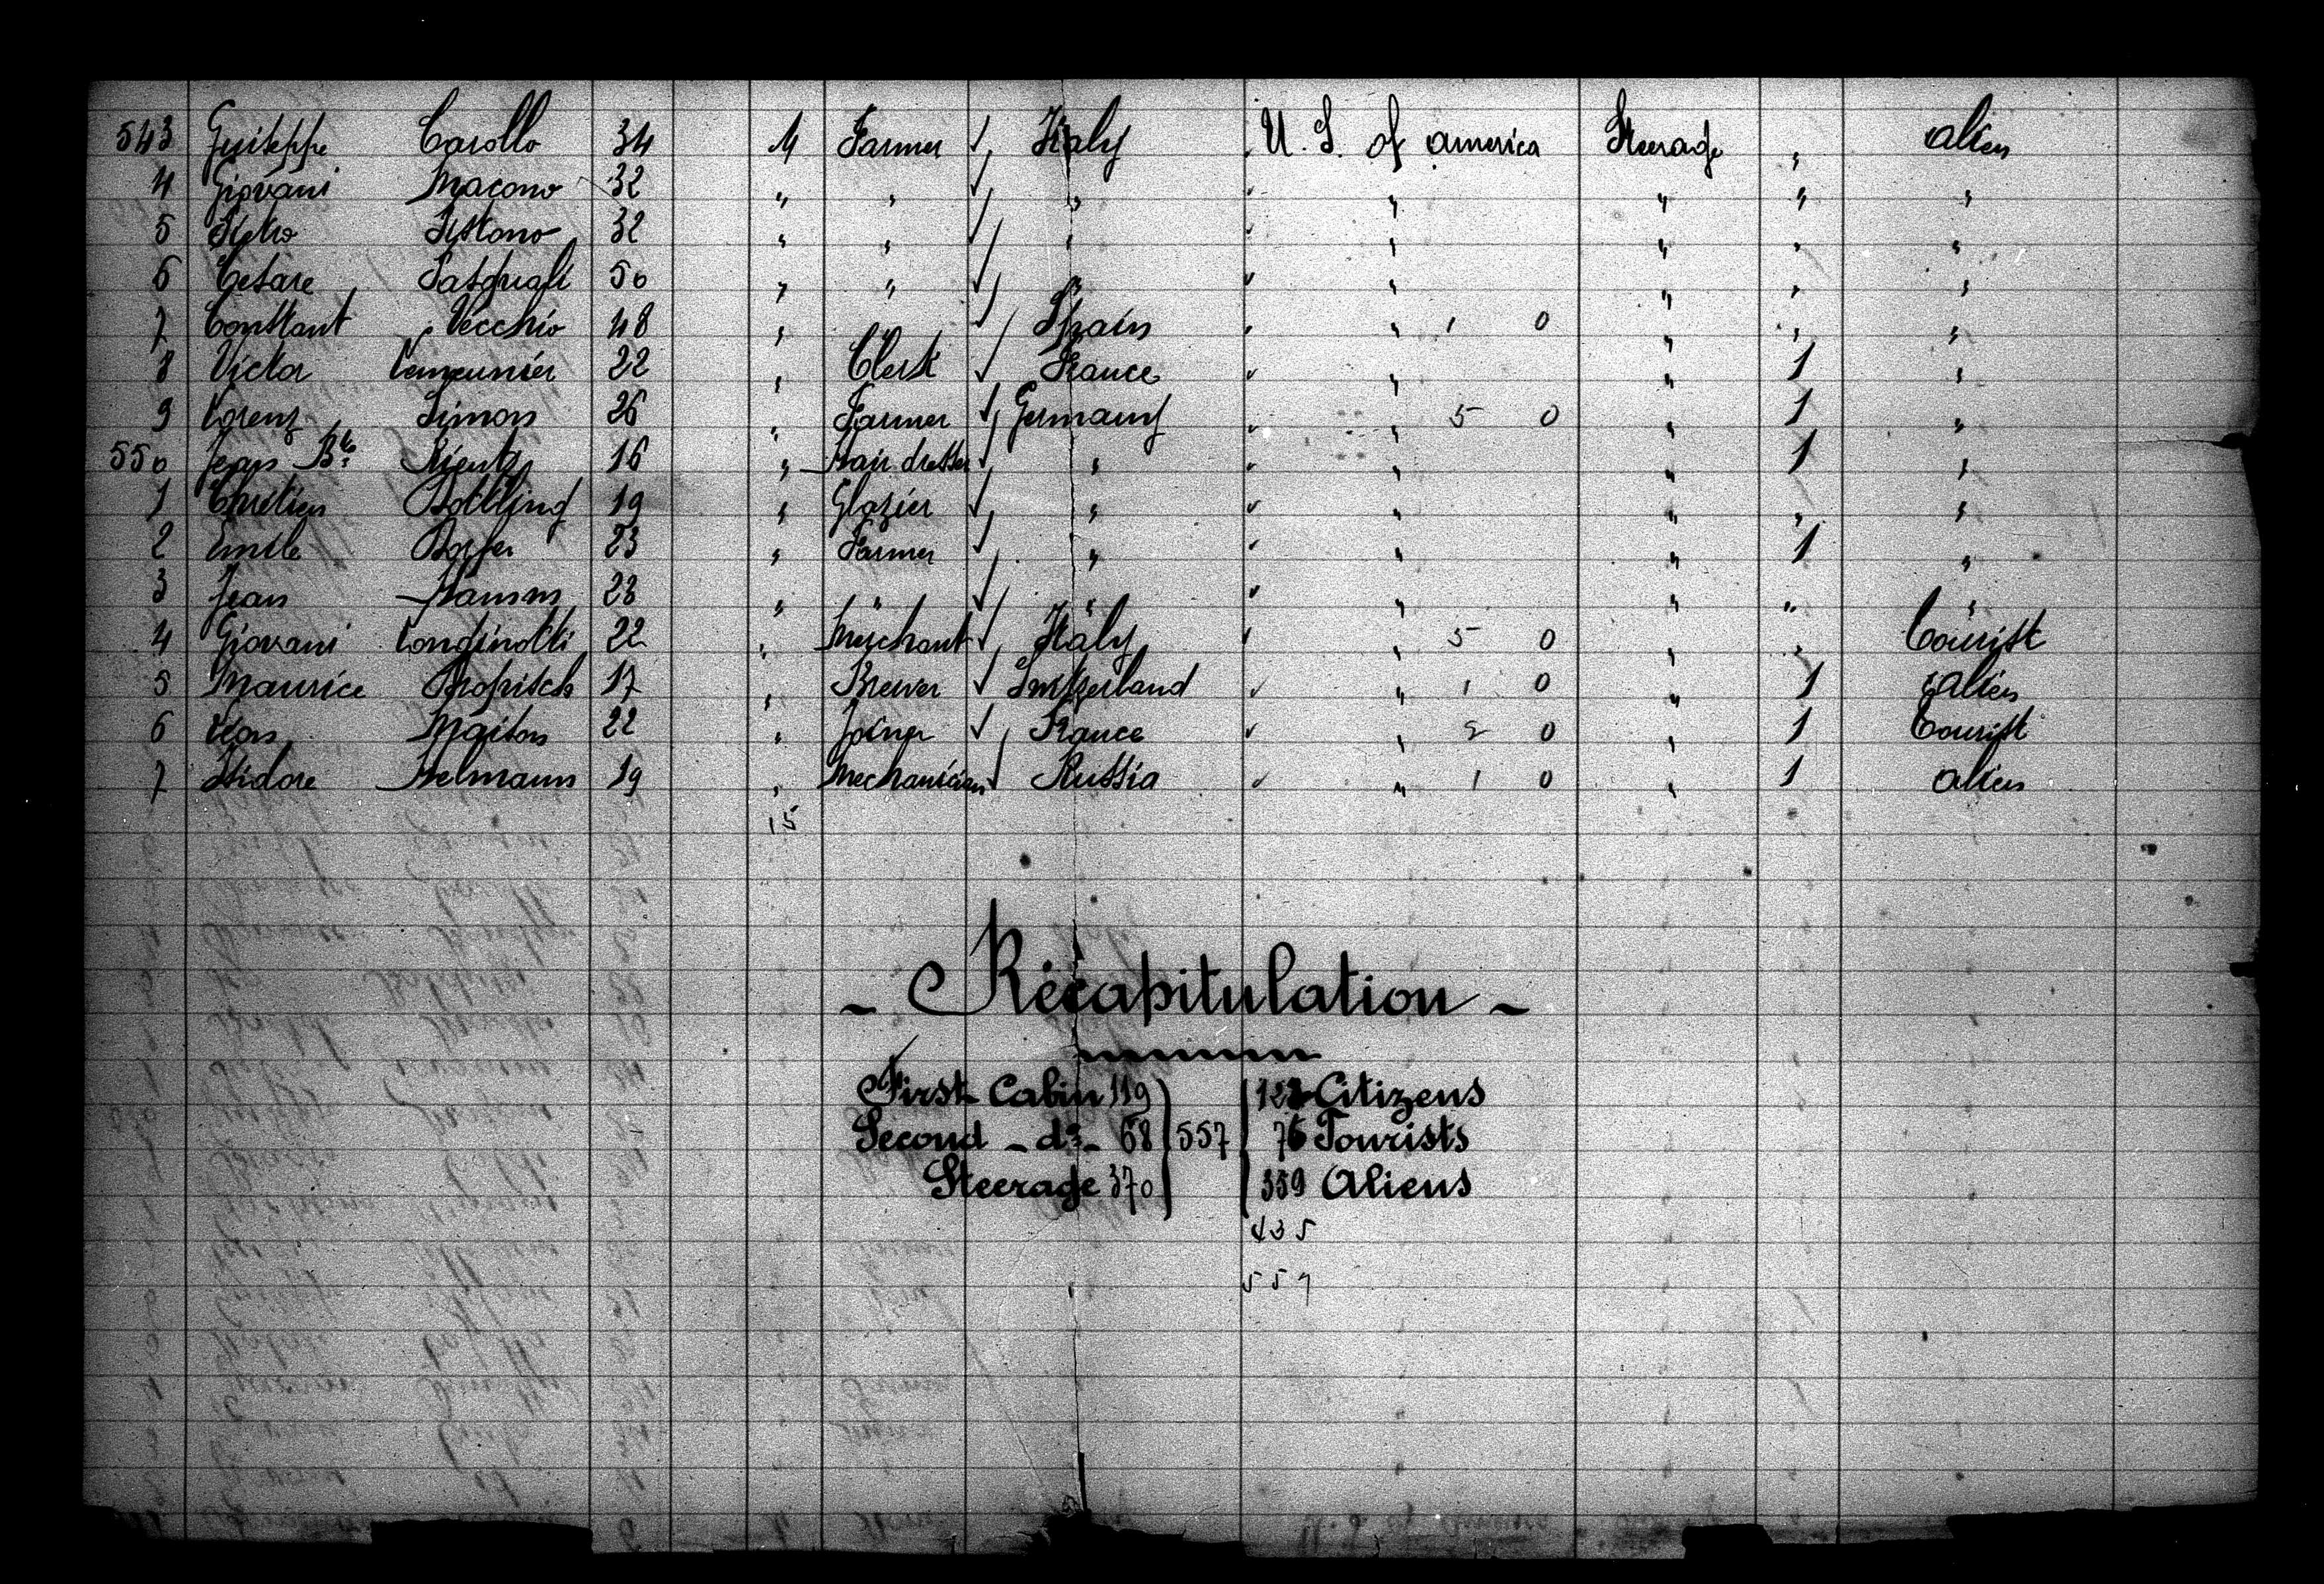 543 Guiseppe Carollo 34 M Farmer ✓ Italy U. S. of america Steerage " alien
4 Giovani Macono 32 " " ✓ " " " " " "
5 32 " " ✓ " " " " " "
6 Cesare Pasquali 50 " " ✓ " " " " " "
7 Constant Vecchio 48 " ✓ Spain " " 1 0 " " "
8 Victor 22 " Clerk ✓ France " " " 1 "
9 Lorenz Simon 26 " Farmer ✓ Germany " " 5 0 " 1 "
550 Jean Bte Rientz 16 " Hair dresser ✓ " " " " 1 "
1 Chrétien Bottling 19 " Glazier ✓ " " " " " "
2 Emile 23 " Farmer ✓ " " " " 1 "
3 Jean Hamm 28 " " ✓ " " " " " "
4 Giovani Longinotti 22 " Merchant ✓ Italy " " 5 0 " " Tourist
5 Maurice 17 " Brewer ✓ Switzerland " " 1 0 " 1 alien
6 Léon Maiton 22 " Joiner ✓ France " " 2 0 " 1 Tourist
7 Isidore Helmann 19 " Mechanician ✓ Russia " " 1 0 " 1 alien
15
- Récapitulation -
First Cabin 119 122 Citizens
Second - do - 68 557 76 Tourists
Steerage 370 359 Aliens
435
557